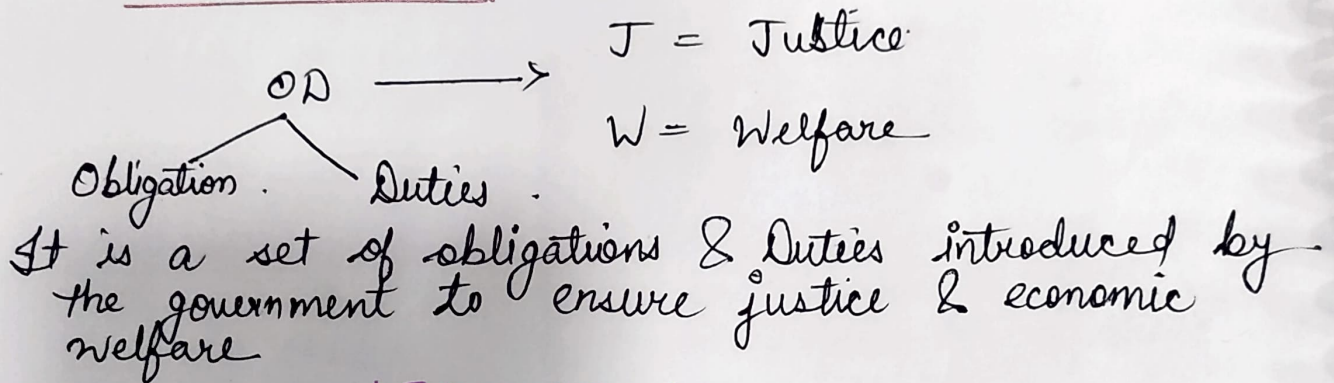 J = Justice
OD →
W = Welfare
Obligation . Duties .
It is a set of obligations & Duties introduced by
the government to ensure justice & economic
welfare